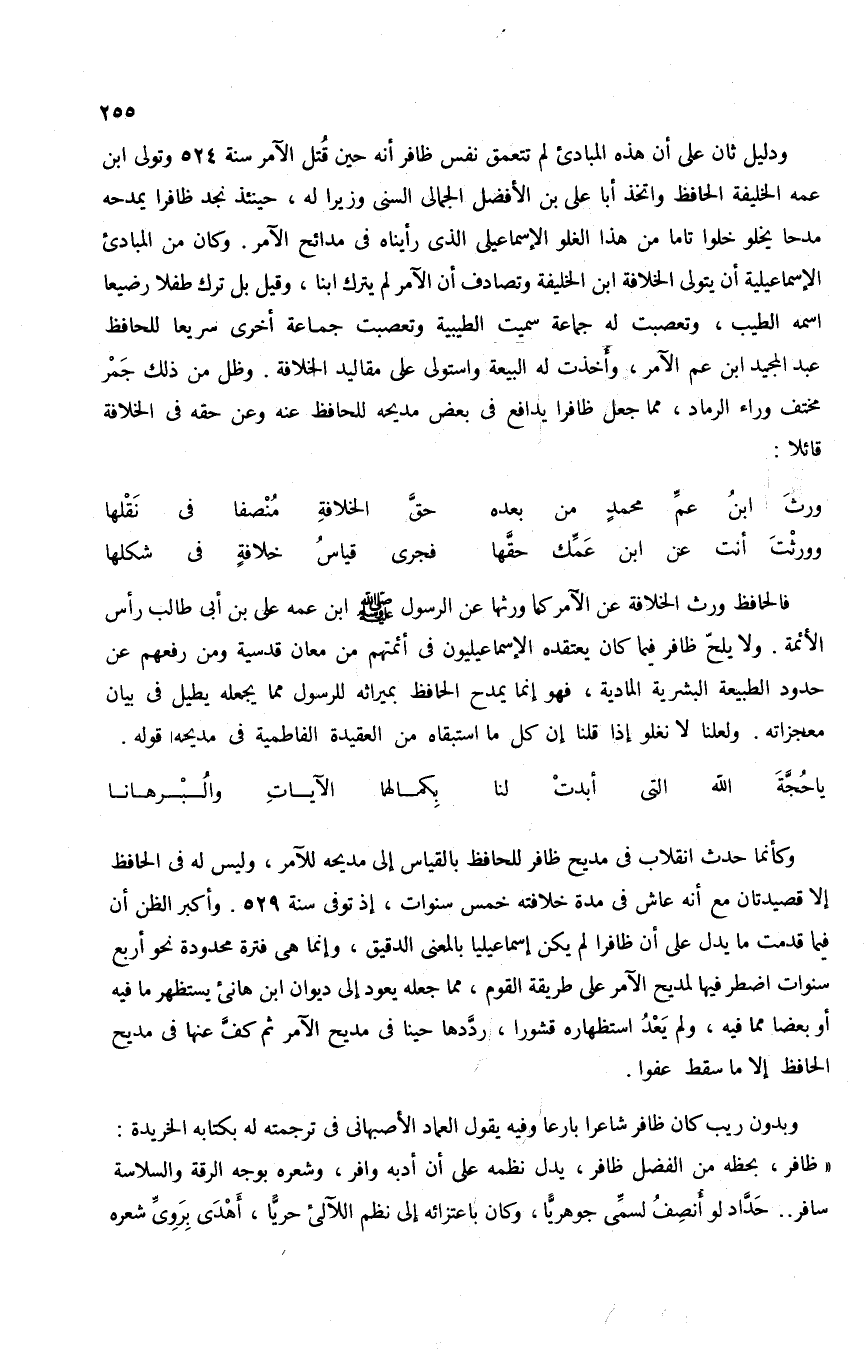 ٢٥٥
ودليل ثان على أن هذه المبادئ لم تتعمق نفس ظافر أنه حين قُتل الآمر سنة ٥٢٤ وتولى ابن
عمه الخليفة الحافظ واتخذ أبا على بن الأفضل الجمالى السنى وزيرا له ، حينئذ نجد ظافرا يمدحه
مدحا يخلو خلوا تاما من هذا الغلو الإسماعيلى الذى رأيناه فى مدائح الآمر . وكان من المبادئ
الإسماعيلية أن يتولى الخلافة ابن الخليفة وتصادف أن الآمر لم يترك ابنا ، وقيل بل ترك طفلا رضيعا
اسمه الطيب ، وتعصبت له جماعة سميت الطيبية وتعصبت جماعة أخرى سريعا للحافظ
عبد المجيد ابن عم الآمر ، وأُخذت له البيعة واستولى على مقاليد الخلافة . وظل من ذلك جَمْر
مختف وراء الرماد ، مما جعل ظافرا يدافع فى بعض مديحه للحافظ عنه وعن حقه فى الخلافة
قائلا :
ورثَ ابنُ عمِّ محمدٍ من بعده حقَّ الخلافةِ مُنْصفا فى نَقْلها
وورثْتَ أنت عن ابن عَمِّك حقَّها فجرى قياسُ خلافةٍ فى شكلها
فالحافظ ورث الخلافة عن الآمر كما ورثها عن الرسول ﷺ ابن عمه على بن أبى طالب رأس
الأئمة . ولا يلحّ ظافر فيما كان يعتقده الإسماعيليون فى أئمتهم من معان قدسية ومن رفعهم عن
حدود الطبيعة البشرية المادية ، فهو إنما يمدح الحافظ بميراثه للرسول مما يجعله يطيل فى بيان
معجزاته . ولعلنا لا نغلو إذا قلنا إن كل ما استبقاه من العقيدة الفاطمية فى مديحه قوله .
ياحُجَّةَ الله التى أبدتْ لنا بِكمـالها الآيـاتِ والُـبْـرهـانـا
وكأنما حدث انقلاب فى مديح ظافر للحافظ بالقياس إلى مديحه للآمر ، وليس له فى الحافظ
إلا قصيدتان مع أنه عاش فى مدة خلافته خمس سنوات ، إذ توفى سنة ٥٢٩ . وأكبر الظن أن
فيما قدمت ما يدل على أن ظافرا لم يكن إسماعيليا بالمعنى الدقيق ، وإنما هى فترة محدودة نحو أربع
سنوات اضطر فيها لمديح الآمر على طريقة القوم ، مما جعله يعود إلى ديوان ابن هانئ يستظهر ما فيه
أو بعضا مما فيه ، ولم يَعْدُ استظهاره قشورا ، ردَّدها حينا فى مديح الآمر ثم كفَّ عنها فى مديح
الحافظ إلا ما سقط عفوا .
وبدون ريب كان ظافر شاعرا بارعا وفيه يقول العماد الأصبهانى فى ترجمته له بكتابه الخريدة :
« ظافر ، بحظه من الفضل ظافر ، يدل نظمه على أن أدبه وافر ، وشعره بوجه الرقة والسلاسة
سافر .. حَدَّاد لو أُنصِفُ لسمِّى جوهريًّا ، وكان باعتزائه إلى نظم اللآلئ حريًّا ، أَهْدَى بِرَوِىِّ شعره